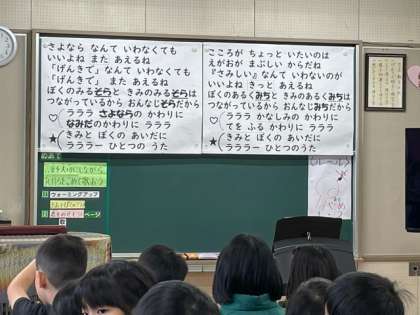 さよなら なんて いわなくても
いいよね また あえるね
「げんきで」 なんて いわなくても
「げんきで」 また あえるね
ぼくのみるそらと きみのみるそらは
つながっているから おんなじそらだから
♡ ラララ さよならの かわりに
なみだのかわりに ラララ
★ きみと ぼくの あいだに
ラララー ひとつの うた
こころが ちょっと いたいのは
えがおが まぶしい からだね
『さみしい』なんて いわないのが
いいよね きっと あえるね
ぼくのあるくみちと きみのあるくみちは
つながっているから おんなじみちだから
♡ ラララ かなしみの かわりに
てを ふる かわりに ラララ
★ きみと ぼくの あいだに
ラララー ひとつの うた
めあて
ウォーミングアップ
ページ